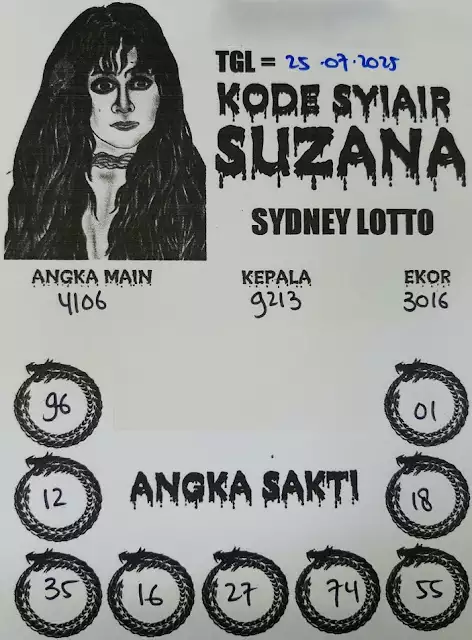 TGL = 25-07-2025
KODE SYIAIR
SUZANA
SYDNEY LOTTO
ANGKA MAIN KEPALA EKOR
4106 9213 3016
96 01
12 ANGKA SAKTI 18
35 16 27 74 55